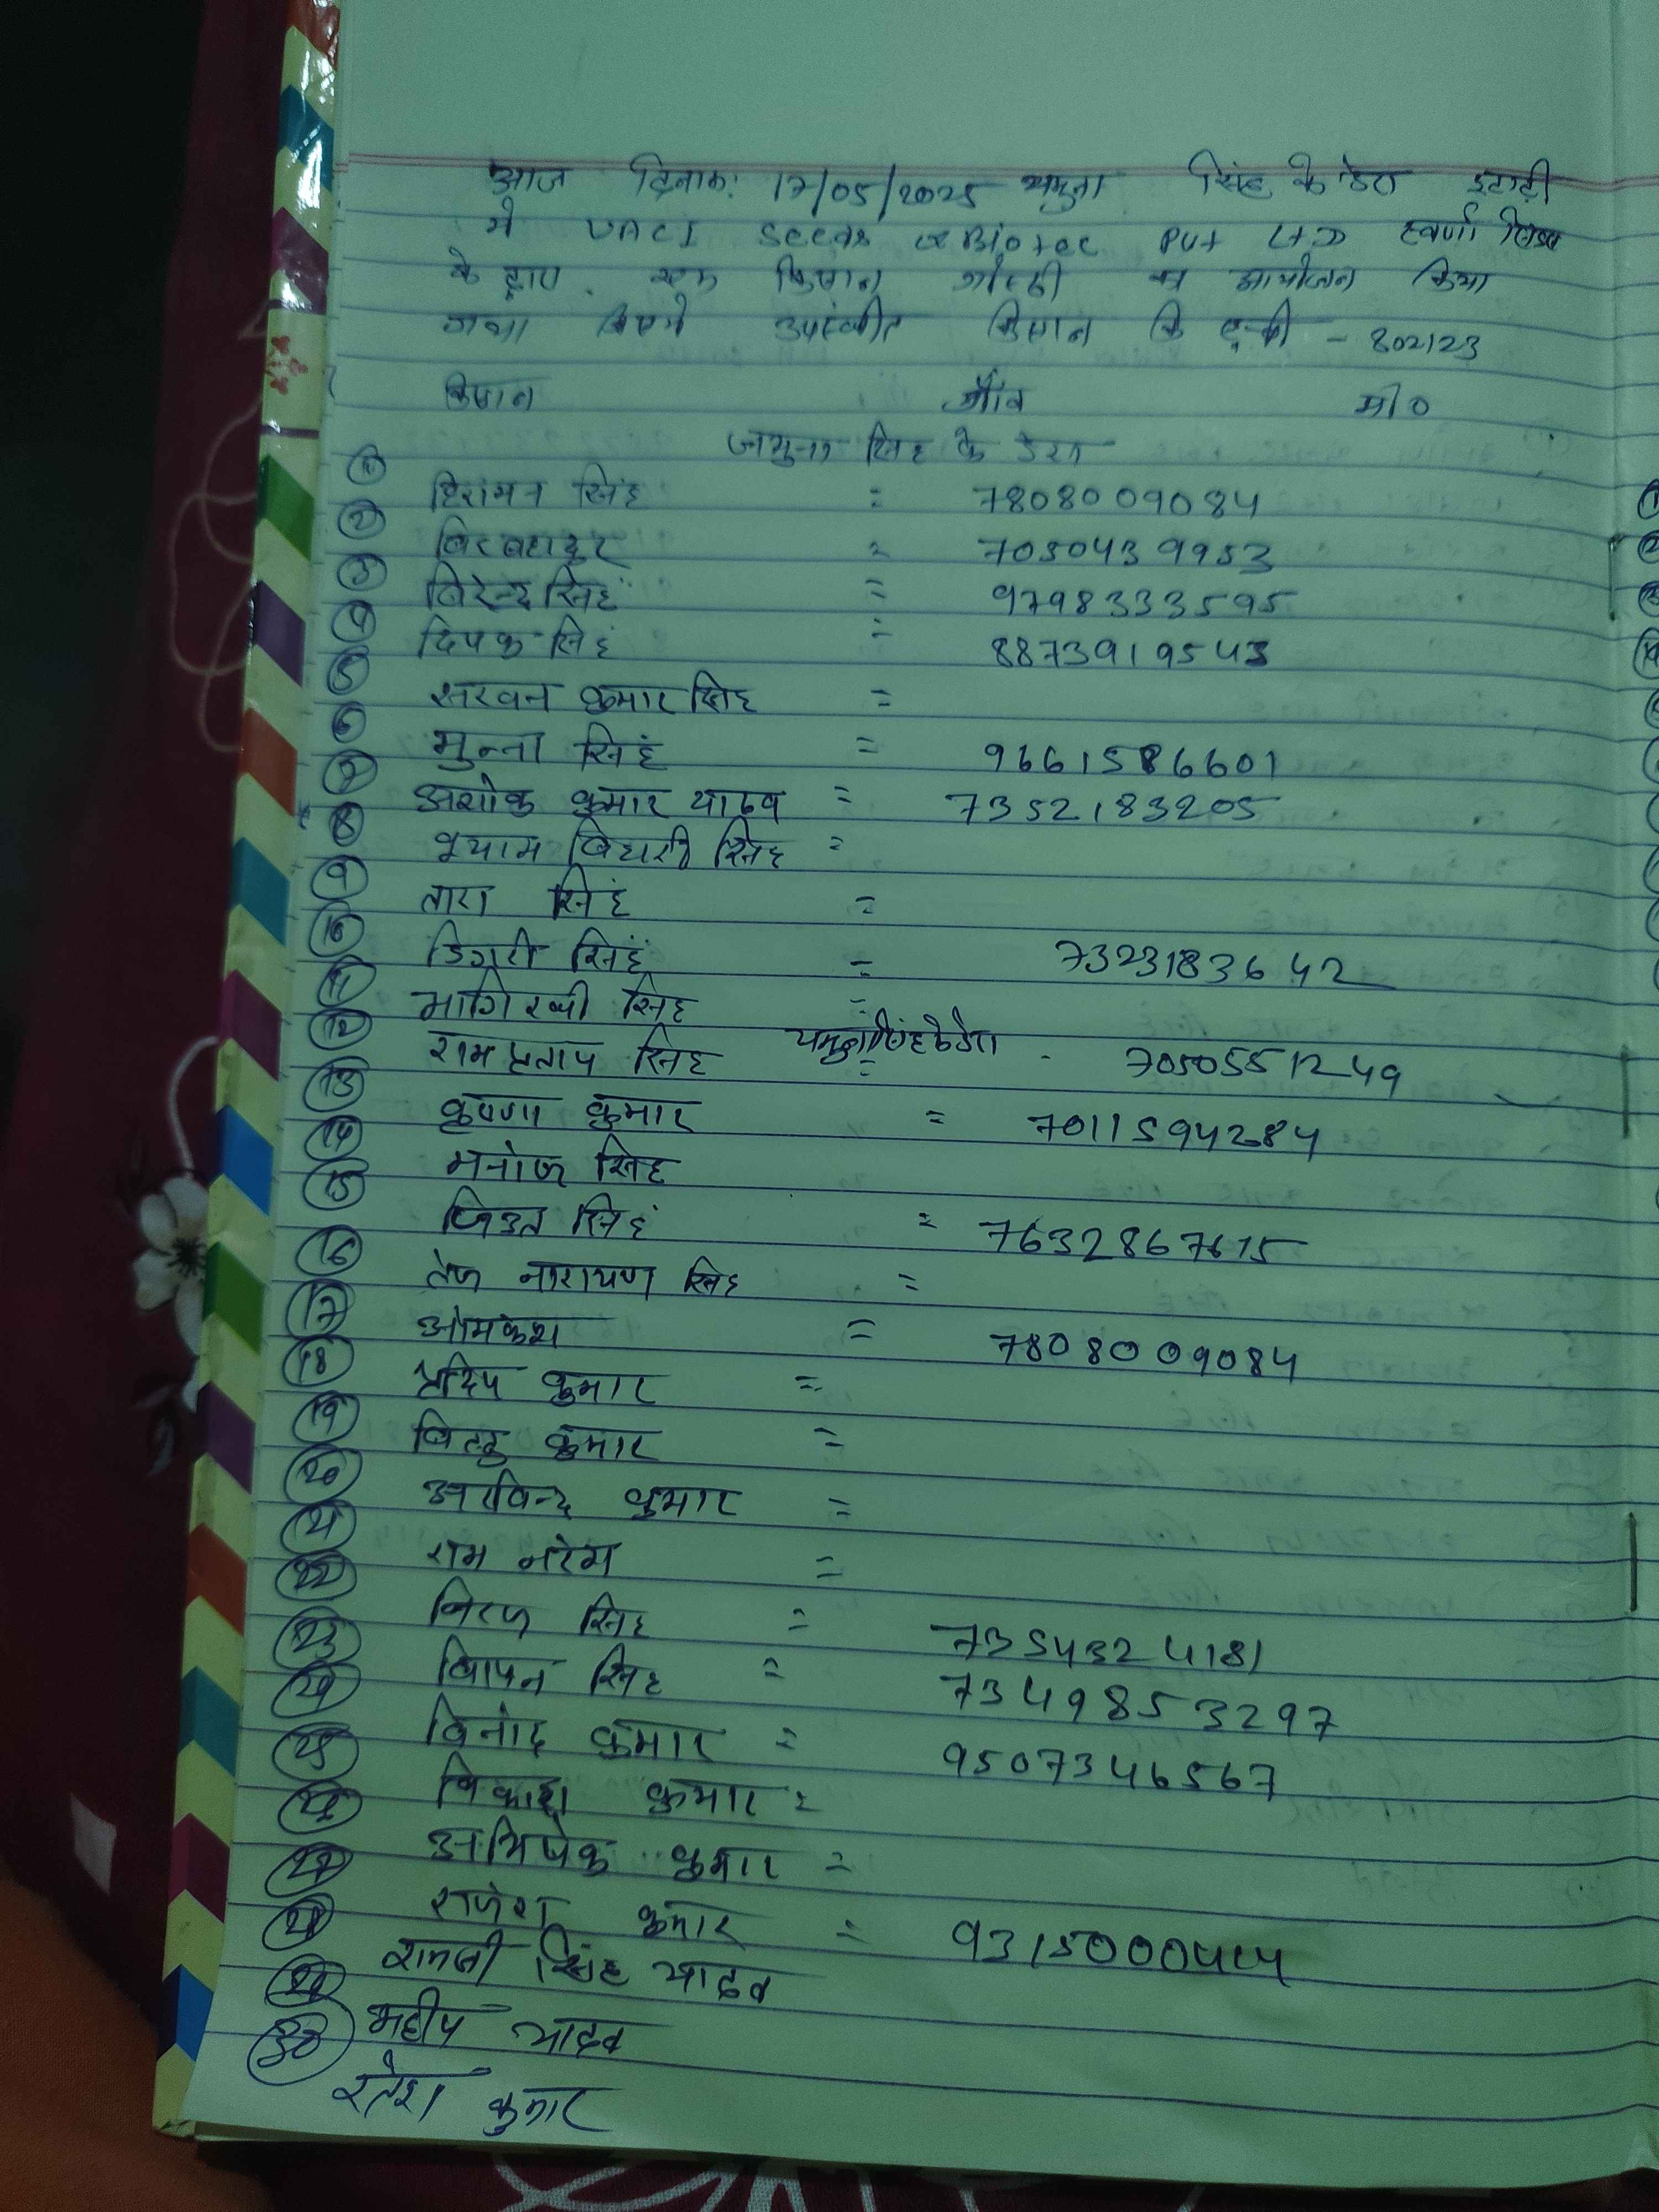 आज दिनाक: 17/05/2025 यमुना सिंह के डेरा इटाढ़ी
मे UACI Seeds & Biotec Put LTD स्वर्णा
के द्वारा एक किसान गोष्ठी का आयोजन किया
गया जिसमे उपस्थीत किसान कि सूची - 802123
किसान गाँव मो०
जमुना सिंह के डेरा
① हिरामन सिंह = 7808009084
② बिरबहादुर = 7050439953
③ बिरेन्द्र सिंह = 9798333595
④ दिपक सिंह = 8873919543
⑤ सरवन कुमार सिंह =
⑥ मुन्ना सिंह = 9661586601
⑦ अशोक कुमार यादव = 7352183205
⑧ श्याम बिहारी सिंह =
⑨ तारा सिंह =
⑩ डिगरी सिंह = 7323183642
⑪ भागिरथी सिंह =
⑫ राम प्रताप सिंह यमुना सिंह के डेरा = 7050551249
⑬ कृष्णा कुमार = 7011594284
⑭ मनोज सिंह
⑮ सिंह = 7632867615
⑯ तेज नारायण सिंह =
⑰ ओमकेश = 7808009084
⑱ प्रदिप कुमार =
⑲ कुमार =
⑳ अरविन्द कुमार =
㉑ राम नरेश =
㉒ निरज सिंह = 7354324181
㉓ बिपिन सिंह = 7349853297
㉔ विनोद कुमार = 9507346567
㉕ विकाश कुमार =
㉖ अभिषेक कुमार =
㉗ राजेश कुमार = 9315000444
㉘ रामजी सिंह यादव
㉙ महीप यादव
㉚ रितेश कुमार